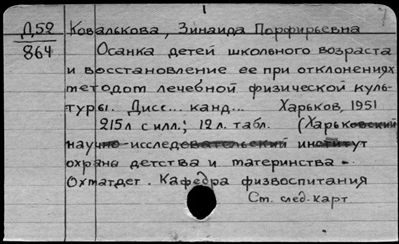 1
Д52
864
Ковалькова, Зинаида Порфирьевна
Осанка детей школьного возраста
и восстановление ее при отклонениях
методом лечебной физической куль-
туры. Дисс... канд... Харьков, 1951
215л с илл.; 12л. табл. (Харьковский
научно-исследовательский институт
охраны детства и материнства -
Охматдет. Кафедра физвоспитания
См. след. карт